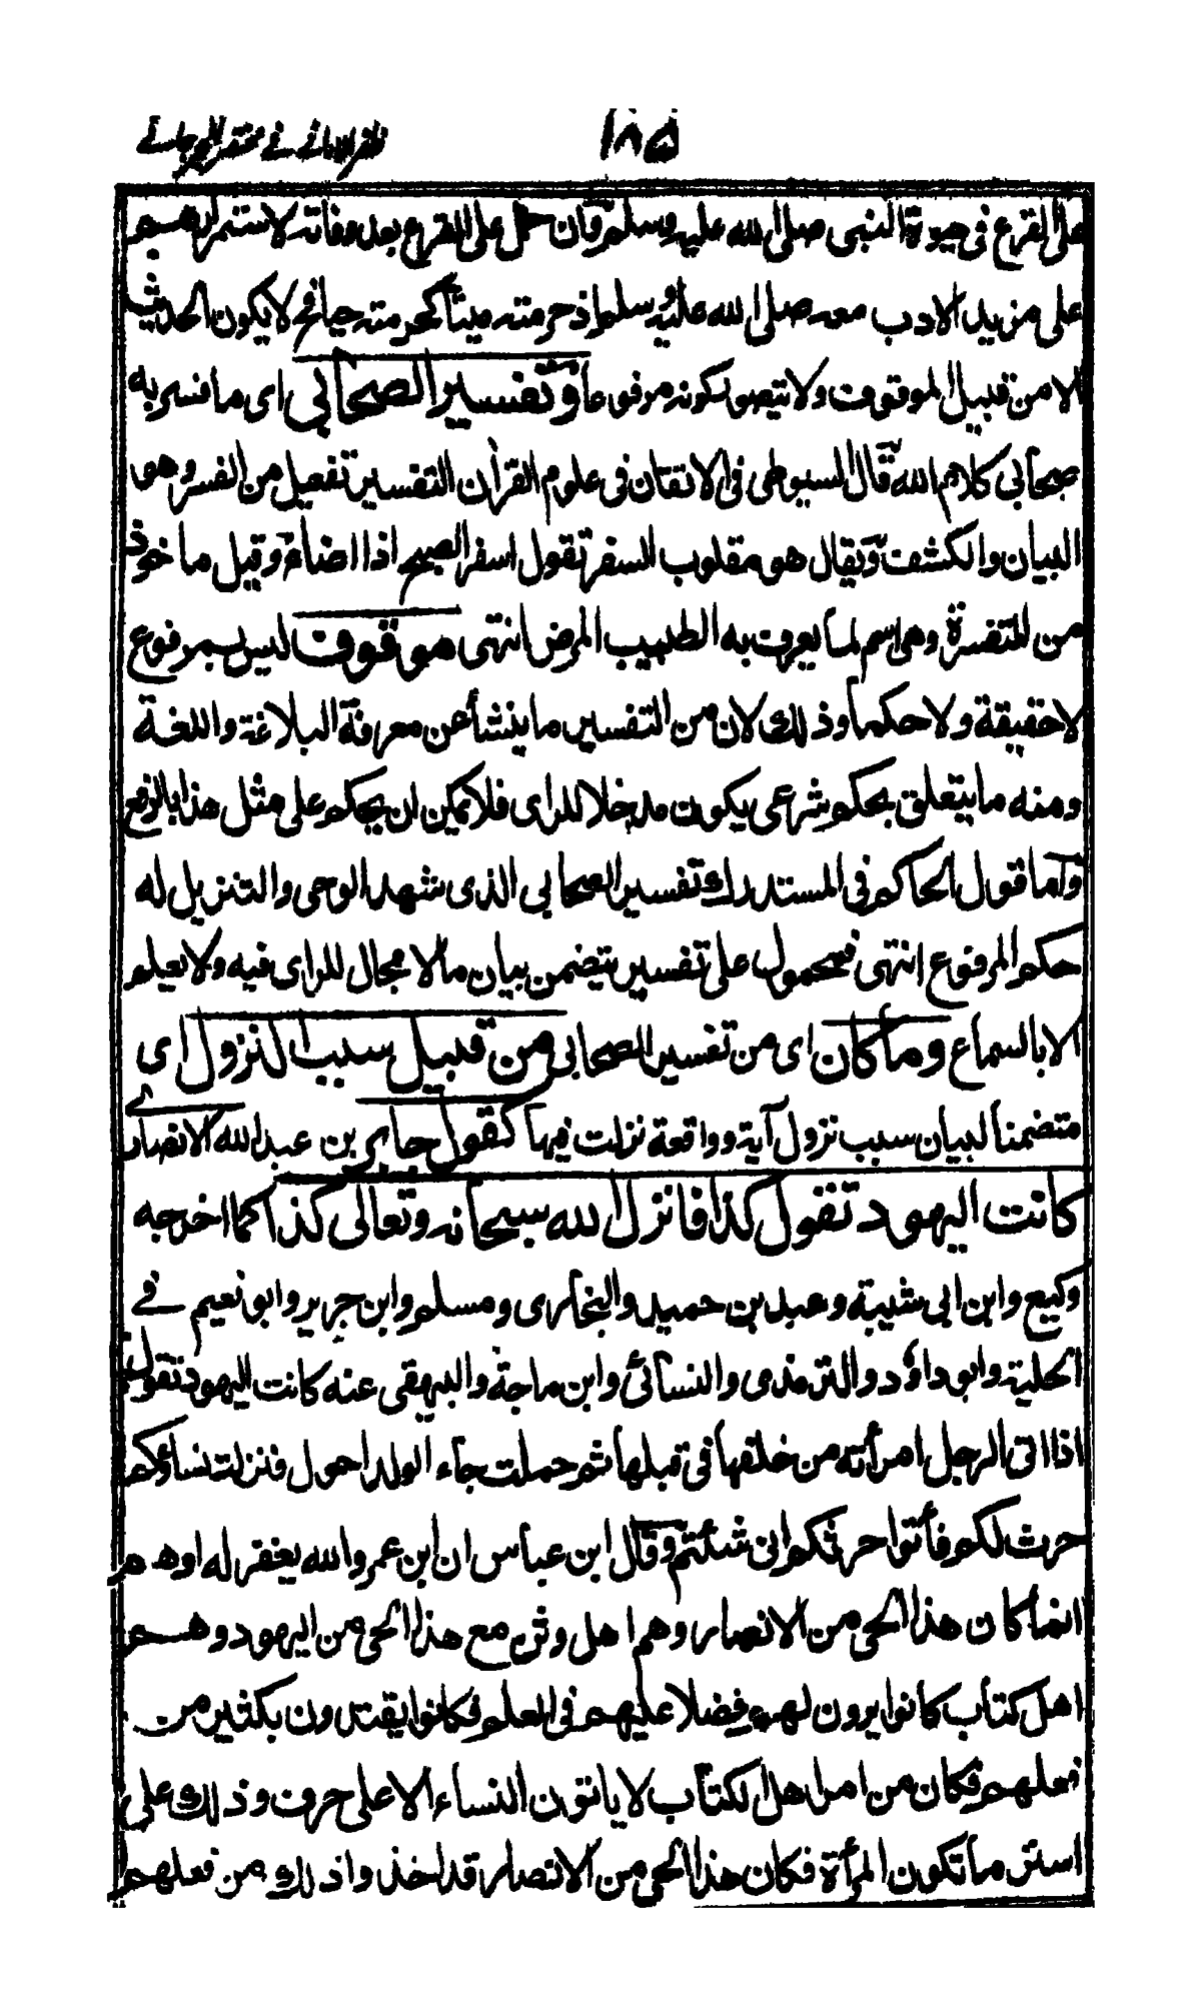 ١٨٥ ظفر الامانى فے مختصر الجرجانے
على القرع فى حيوة النبى صلى الله عليه وسلم وان حمل على القرع بعد وفاته لاستمرارهم
على مزيد الادب معه صلى الله عليه وسلم اذ حرمته ميتا كحرمته حيا فح لا يكون الحديث
الا من قبيل الموقوف ولا يتصور كونه مرفوعا وتفسير الصحابي اى ما فسر به
صحابي كلام الله قال السيوطى فى الاتقان فى علوم القرآن التفسير تفعيل من الفسر وهو
البيان والكشف ويقال هو مقلوب السفر تقول اسفر الصبح اذا اضاء وقيل ماخوذ
من التفسرة وهى اسم لما يعرف به الطبيب المرض انتهى موقوف ليس بمرفوع
لا حقيقة ولا حكما وذلك لان من التفسير ما ينشأ عن معرفة البلاغة واللغة
ومنه ما يتعلق بحكم شرعى يكون مدخلا للراى فلا يمكن ان يحكم على مثل هذا بالرفع
وآما قول الحاكم فى المستدرك تفسير الصحابي الذى شهد الوحى والتنزيل له
حكم المرفوع انتهى فمحمول على تفسير يتضمن بيان ما لا مجال للراى فيه ولا يعلم
الا بالسماع وما كان اى من تفسير الصحابي من قبيل سبب النزول اى
متضمنا لبيان سبب نزول آية وواقعة نزلت فيها كقول جابر بن عبد الله الانصارى
كانت اليهود تقول كذا فانزل الله سبحانه وتعالى كذا كما اخرجه
وكيع وابن ابى شيبة وعبد بن حميد والبخارى ومسلم وابن جرير وابو نعيم فے
الحلية وابو داؤد والترمذى والنسائى وابن ماجة والبيهقى عنه كانت اليهود تقول
اذا اتى الرجل امرأته من خلفها فى قبلها ثم حملت جاء الولد احول فنزلت نساؤكم
حرث لكم فأتوا حرثكم انى شئتم وقال ابن عباس ان ابن عمر والله يغفر له اوهم
انما كان هذا الحى من الانصار وهم اهل وثن مع هذا الحى من اليهود وهم
اهل كتاب كانوا يرون لهم فضلا عليهم فى العلم فكانوا يقتدون بكثير من
فعلهم فكان من امر اهل الكتاب لا ياتون النساء الا على حرف وذلك على
استر ما تكون المرأة فكان هذا الحى من الانصار قد اخذوا ذلك من فعلهم